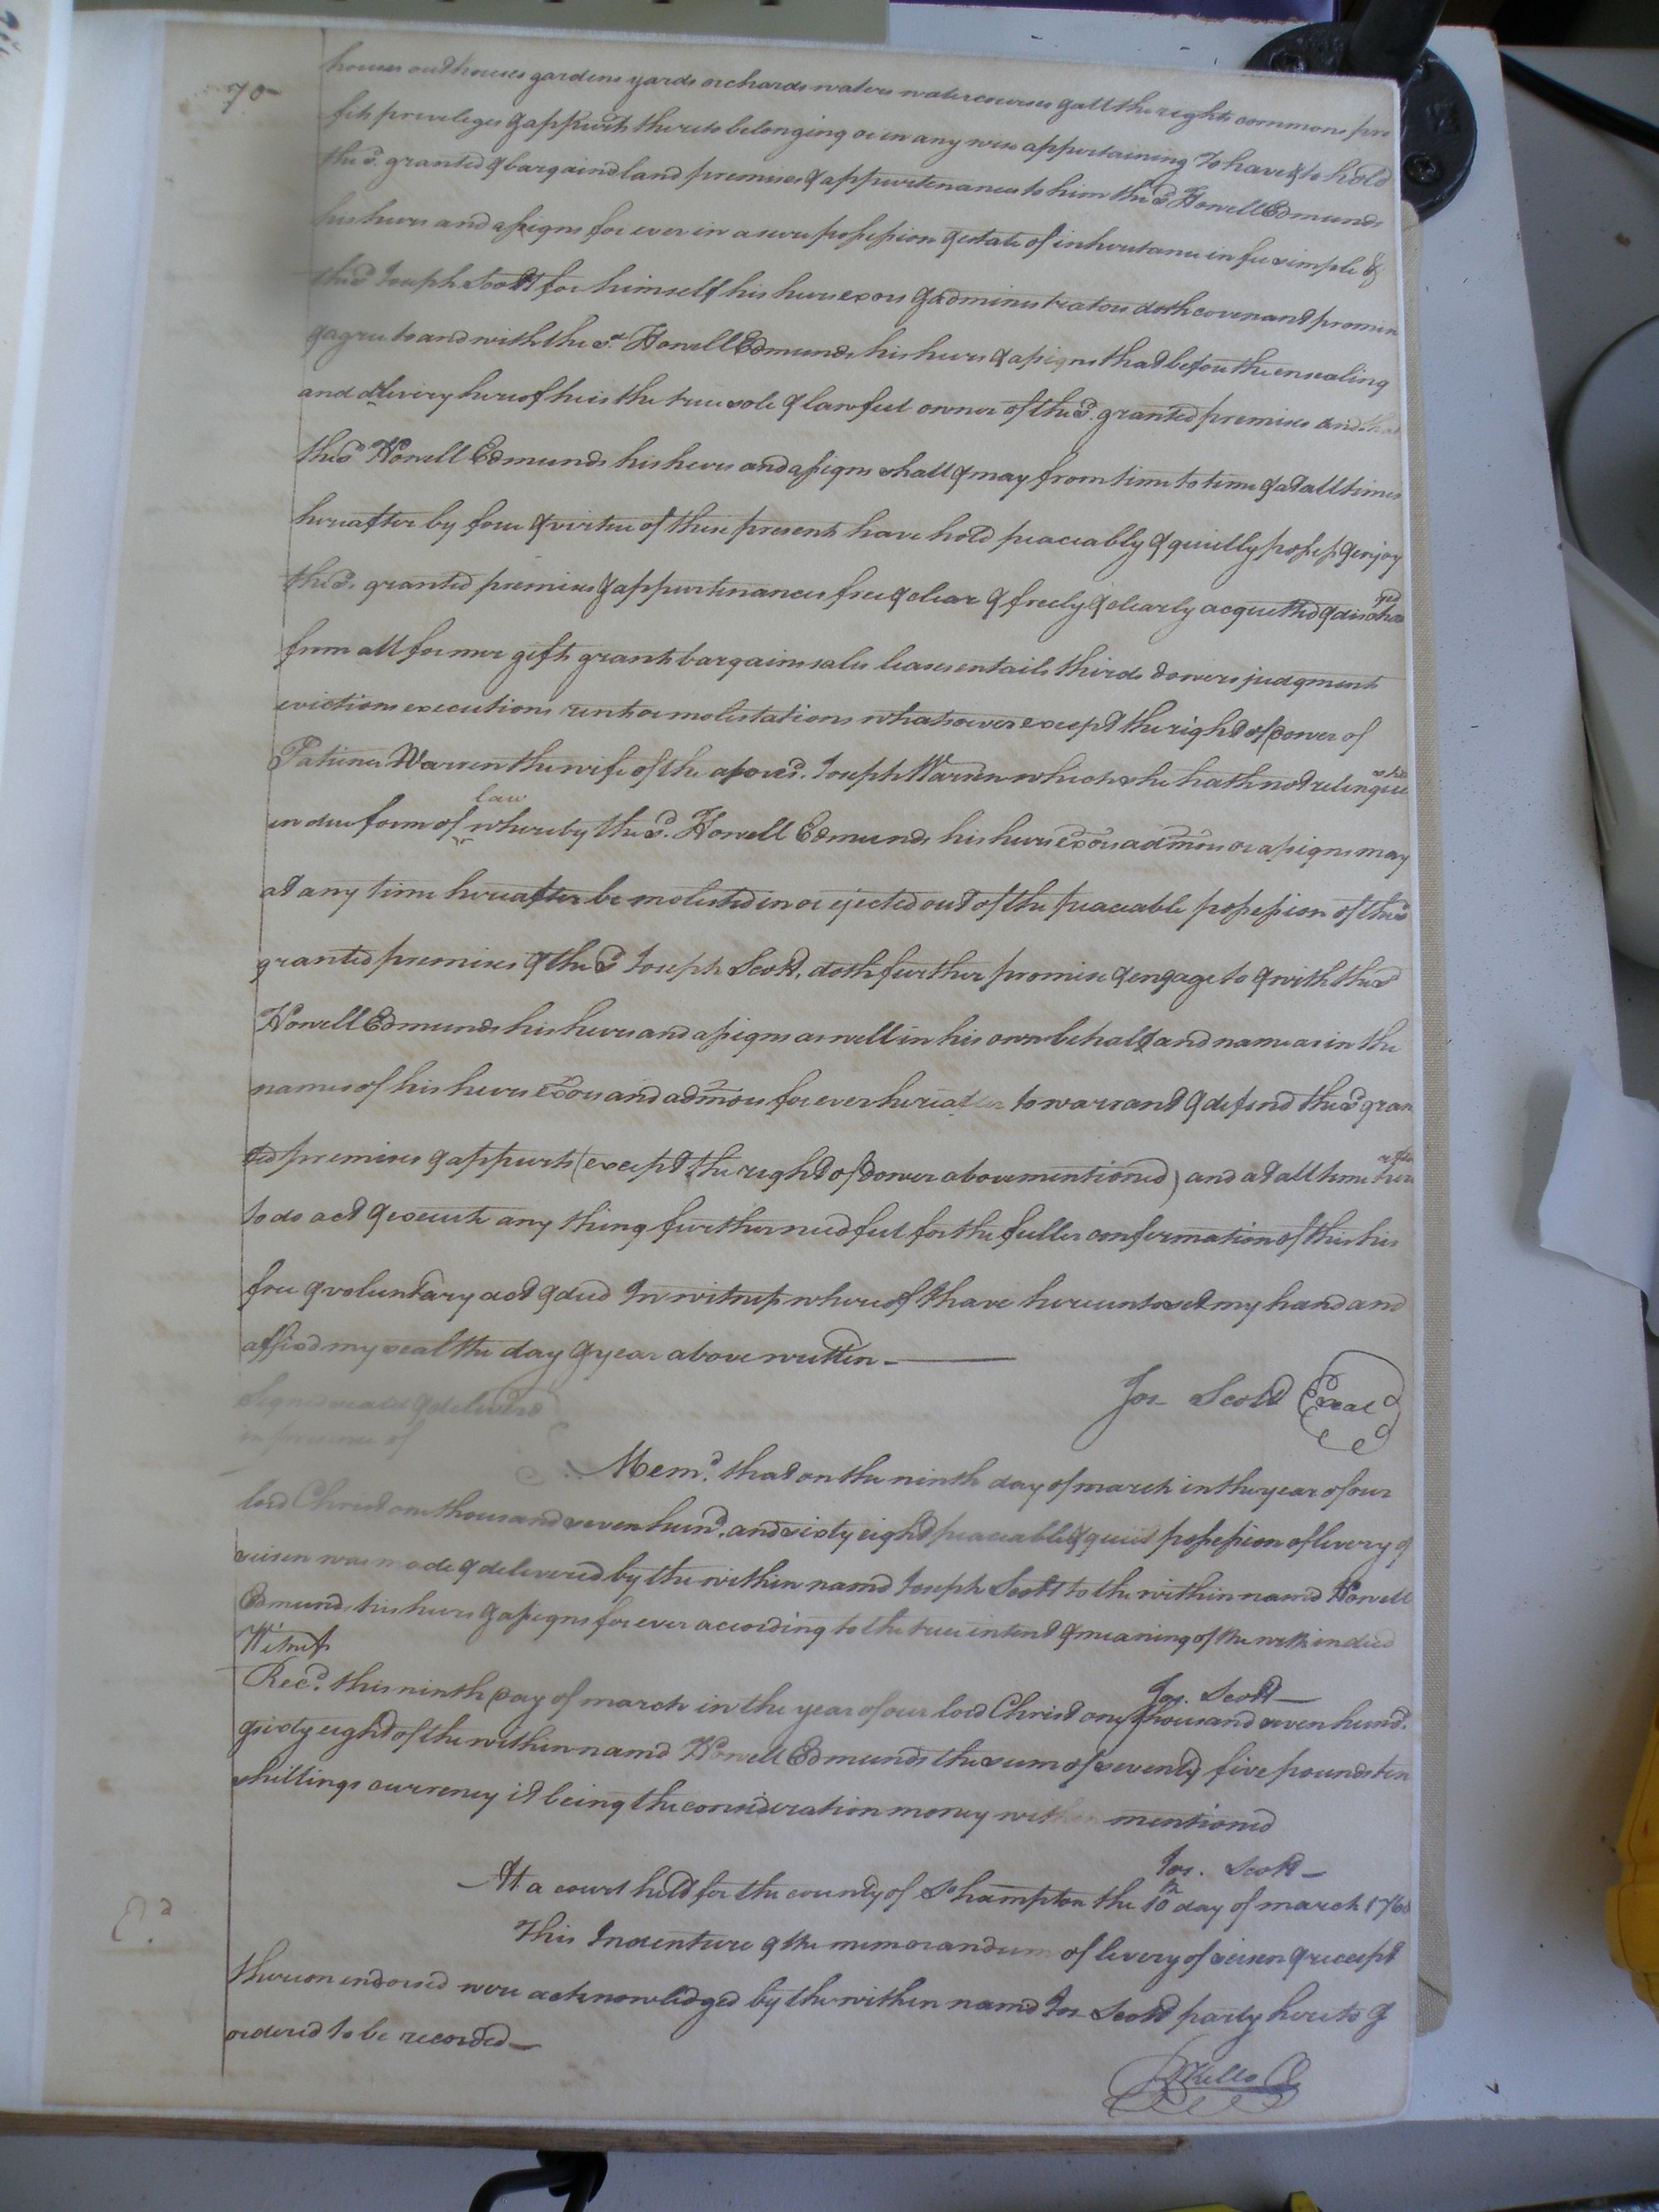 70
houses outhouses gardens yards orchards waters watercourses & all the rights commons pro
fits priveleges & appurts thereto belonging or in any wise appertaining To have & to hold
the sd. granted & bargaind land premises & appurtenances to him the sd Howell Edmunds
his heirs and assigns for ever in a sure possession & estate of inheritance in fee simple &
the sd Joseph Scott for himself his heirs exors & administrators doth covenant promise
& agree to and with the sd. Howell Edmunds his heirs & assigns that before the ensealing
and delivery hereof he is the true sole & lawfull owner of the sd. granted premises and that
the sd Howell Edmunds his heirs and assigns shall & may from time to time & at all times
hereafter by force & virtue of these present have hold peaceably & quietly possess & enjoy
the sd. granted premises & appurtenances free & clear & freely & clearly acquitted & dischar
ged
from all former gifts grants bargains sales leases entails thirds dowers judgments
evictions executions rents or molestations whatsoever except the right of dower of
Patience Warren the wife of the aforesd. Joseph Warren which she hath not relinqui
shd
in due form of law whereby the sd. Howell Edmunds his heirs exors admors or assigns may
at any time hereafter be molested in or ejected out of the peaceable possession of the sd
granted premises & the sd Joseph Scott, doth further promise & engage to & with the sd
Howell Edmunds his heirs and assigns as well in his own behalf and name as in the
names of his heirs exors and admors for ever hereafter to warrant & defend the sd gran
ted premises & appurts (except the right of dower above mentioned) and at all time here
after
to do act & execute any thing further needful for the fuller confirmation of this his
free & voluntary act & deed In witness whereof I have hereunto set my hand and
affixd my seal the day & year above written -
Jos Scott Seal
Signd seald & deliverd
in presence of
Memd. that on the ninth day of march in the year of our
lord Christ one thousand seven hund. and sixty eight peaceable & quiet possession of livery of
seisen was made & delivered by the within namd Joseph Scott to the within namd Howell
Edmunds his heirs & assigns for ever according to the true intent & meaning of the within deed
Witness
Jos. Scott
Recd. this ninth day of march in the year of our lord Christ one thousand seven hund.
& sixty eight of the within namd Howell Edmunds the sum of seventy five pounds ten
shillings currency it being the consideration money within mentioned
Jos. Scott
At a court held for the county of Sohampton the 10th day of march 1768
This Indenture & the memorandum of livery of seisen & receipt
Ed.
thereon endorsed were acknowledged by the within namd Jos Scott party hereto &
ordered to be recorded
Kello